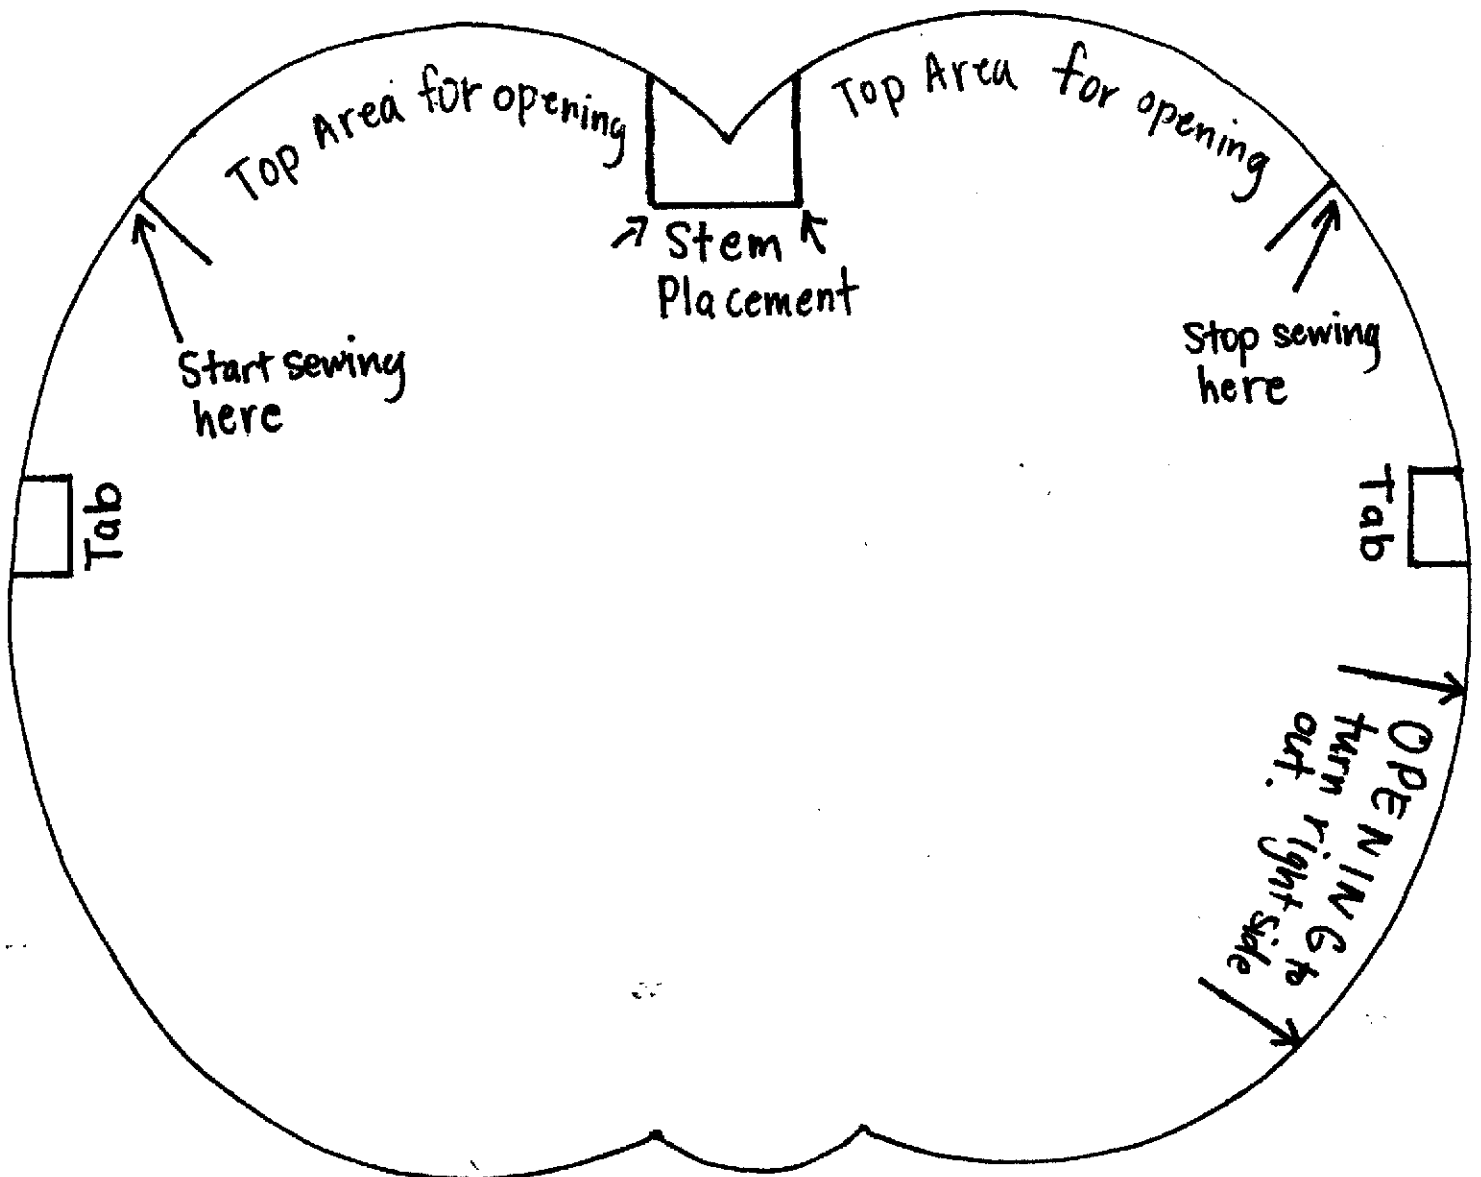 Top Area for opening
Top Area for opening
Stem
Placement
Start sewing
here
Stop sewing
here
Tab
Tab
OPENING to
turn right side
out.